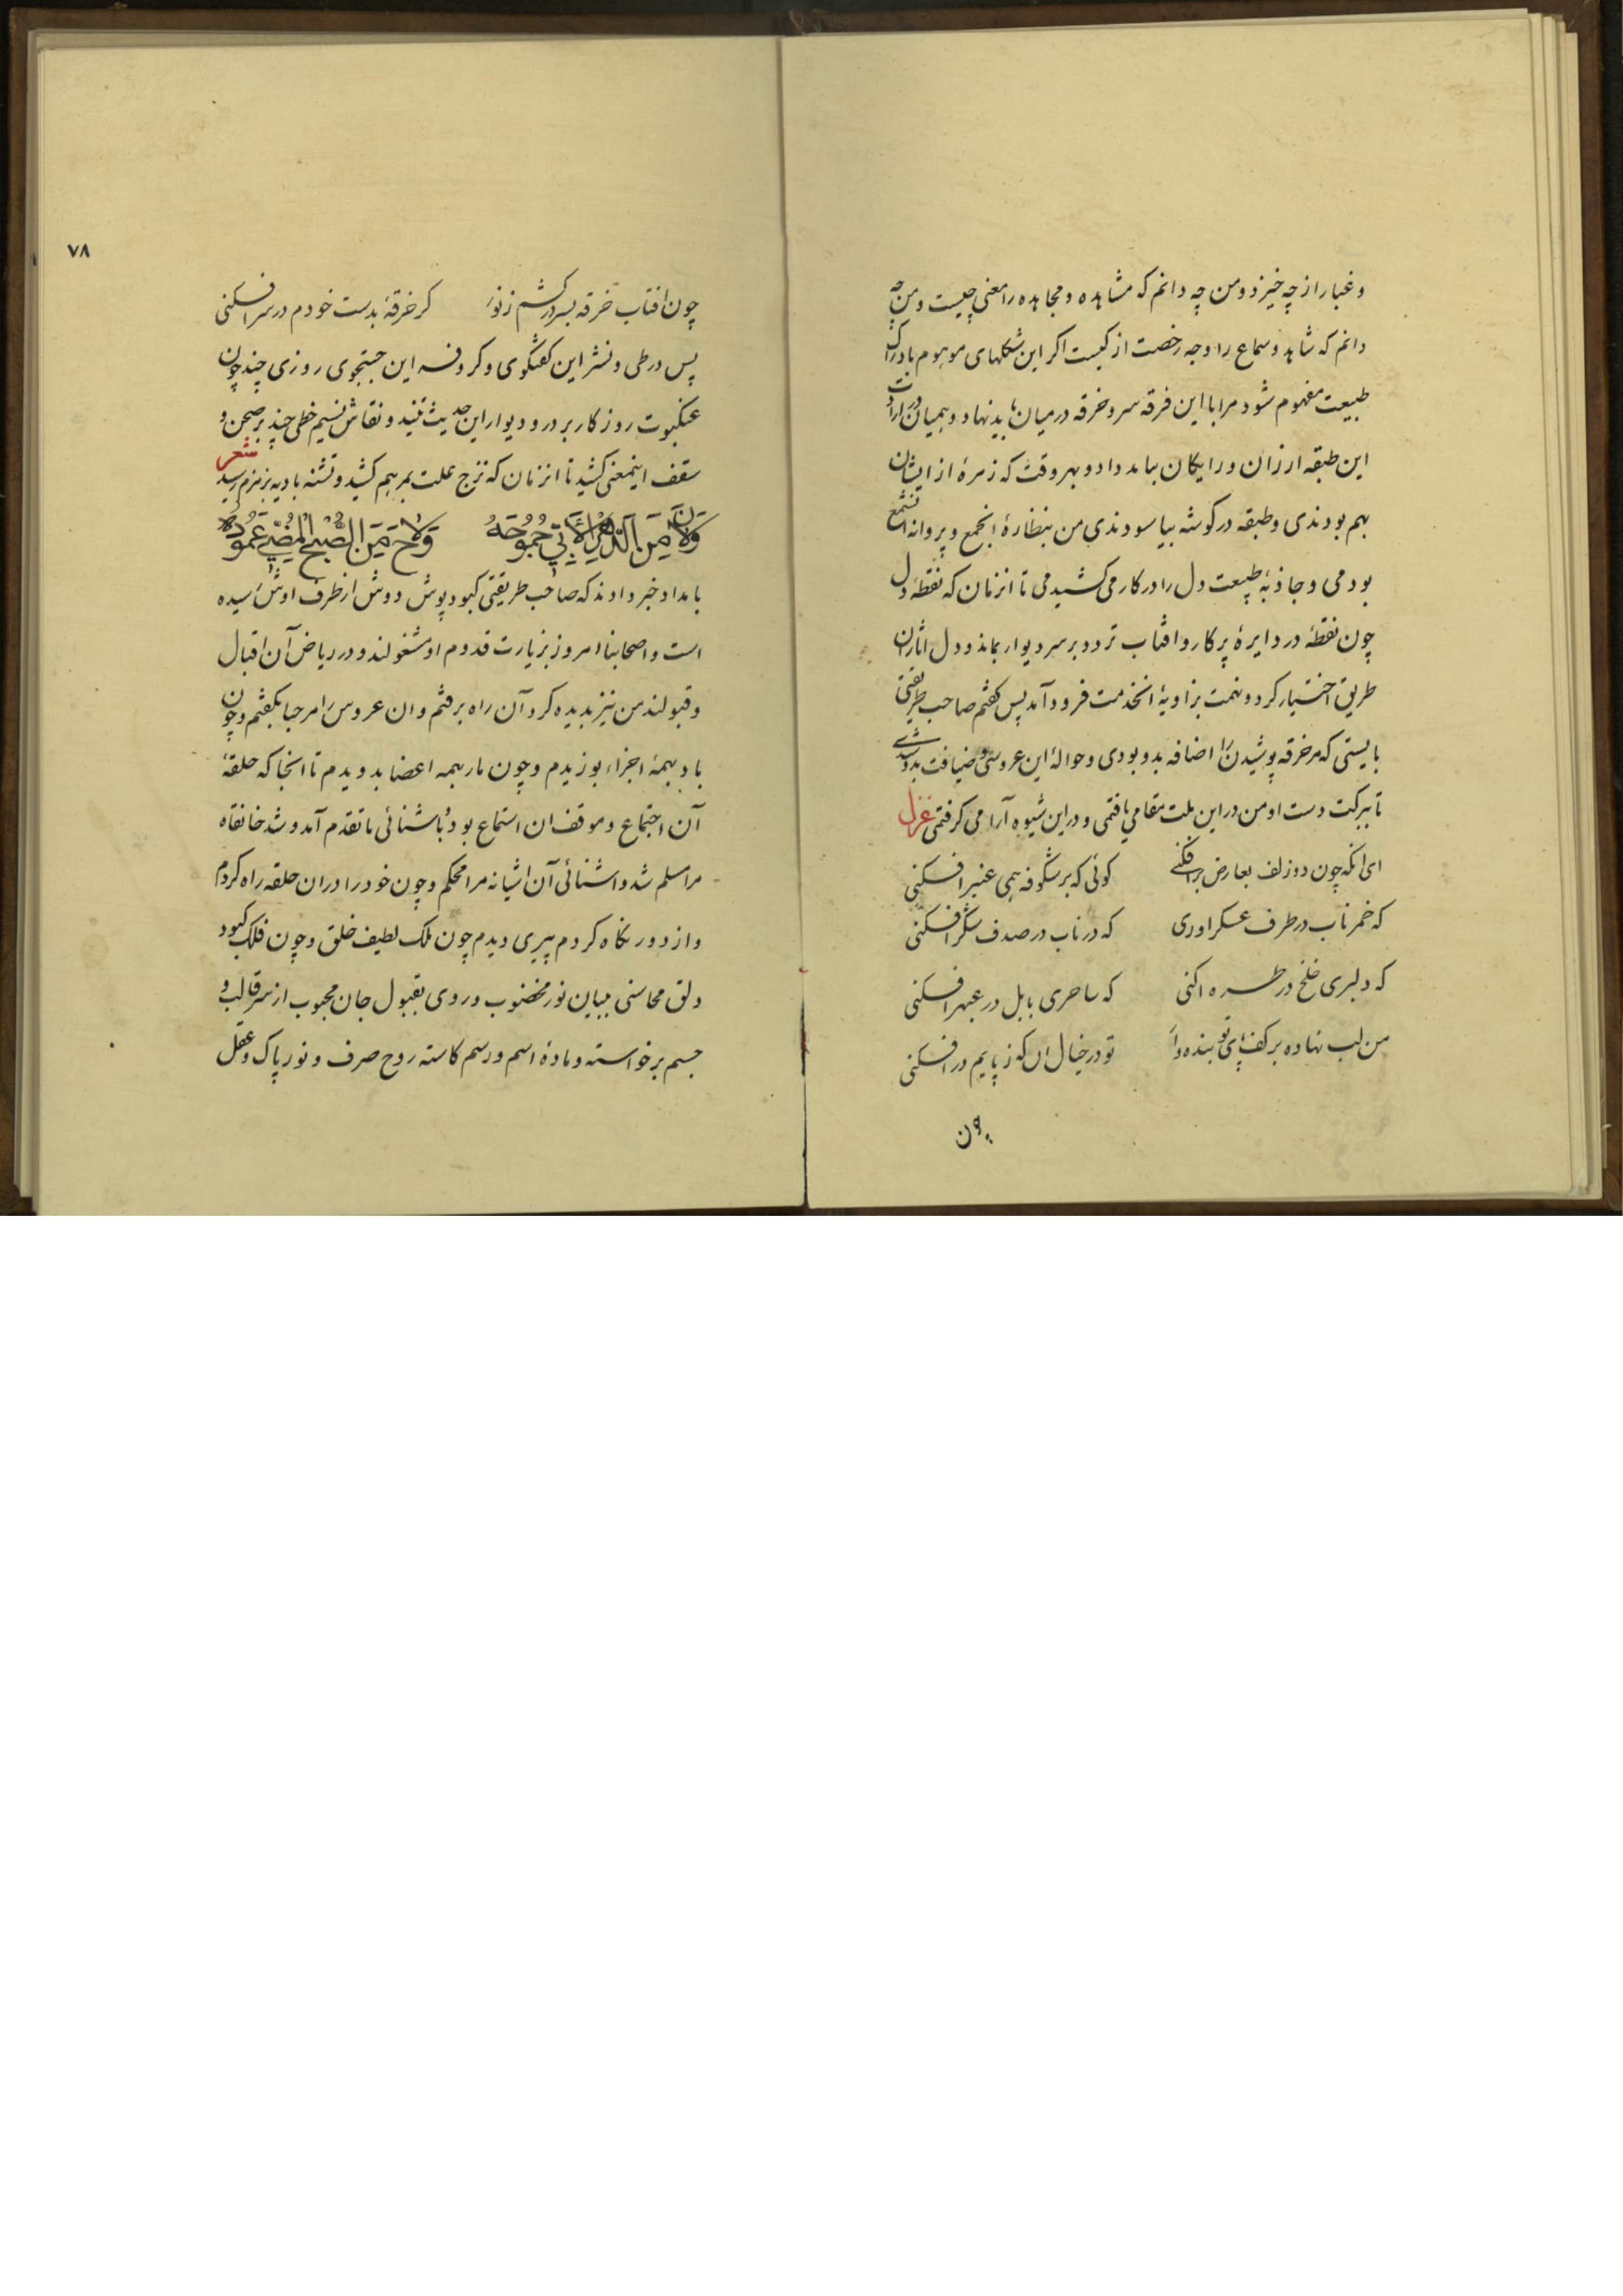 و غبار از چه خیزد و من چه دانم که مشاهده و مجاهده را معنی چیست و من چه
دانم که شاهد و سماع را وجه رخصت از کیست اکر این شکلهای موهوم بادراک
طبیعت مفهوم شود مرا با این فرقه سر و خرقه در میان باید نهاد و همیان در ارادت
این طبقه ارزان و رایکان بباید داد و بهر وقت که زمرۀ از ایشان
بهم بودندی و طبقه در کوشه بیاسودندی من بنظارۀ انجمع و پروانه انشمع
بودمی و جاذبۀ طبیعت دل را در کار می کشیدمی تا انزمان که نقطۀ دل
چون نقطۀ در دایرۀ پرکار و افتاب تردد بر سر دیوار بماند و دل اثاران
طریق اختیار کرد و نهمت بزاویۀ انخدمت فرود آمد پس کفتم صاحب طریقتی
بایستی که مر خرقه پوشیدن را اضافه بدو بودی و حوالۀ این عروسی و ضیافت بدو شدی
تا ببرکت دست او من در این ملت مقامی یافتمی و در این شیوه آرامی کرفتمی غزل
ای انکه چون دو زلف بعارض برافکنی کوئی که بر شکوفه همی عنبر افکنی
که خمر ناب در طرف عسکر اوری که در ناب در صدف شکر افکنی
که دلبری خلخ در طره اکنی که ساحری بابل در عبهر افکنی
من لب نهاده بر کف پای تو بنده وار تو در خیال ان که ز پایم در افکنی
چون
۷۸
چون افتاب خرقه بسر در کشم ز نور کر خرقۀ بدست خودم در سر افکنی
پس در طی و نشر این کفتکوی و کر و فر این جستجوی روزی چند چون
عنکبوت روزکار بر در و دیوار این حدیث تنید و نقاش نسیم خطی چند بر صحن و
سقف اینمعنی کشید تا انزمان که نزج علت بمرهم کشید و تشنه بادیه بزمزم رسید شعر
وَلَانَ مِنَ الدَّهْرِ الْاَبِیِّ جُمُوحَهُ وَلَاحَ مِنَ الصُّبْحِ الْمُضِیِٔ عَمُودُهُ
بامداد خبر دادند که صاحب طریقتی کبود پوش دوش از طرف اوش رسیده
است و اصحابنا امروز بزیارت قدوم او مشغولند و در ریاض آن اقبال
و قبولند من نیز بدیده کرد آن راه برفتم و ان عروس را مرحبا بکفتم و چون
باد بهمۀ اجزاء بوزیدم و چون مار بهمه اعضا بدویدم تا انجا که حلقۀ
آن اجتماع و موقف ان استماع بود باشنائی ما تقدم آمد و شد خانقاه
مرا مسلم شد و اشنائی آن اشیانه مرا محکم و چون خود را دران حلقه راه کردم
و از دور نکاه کردم پیری دیدم چون ملک لطیف خلق و چون فلک کبود
دلق محاسنی ببیان نور مخضوب و روی بقبول جان محبوب از سر قالب و
جسم برخواسته و مادۀ اسم و رسم کاسته روح صرف و نور پاک و عقل